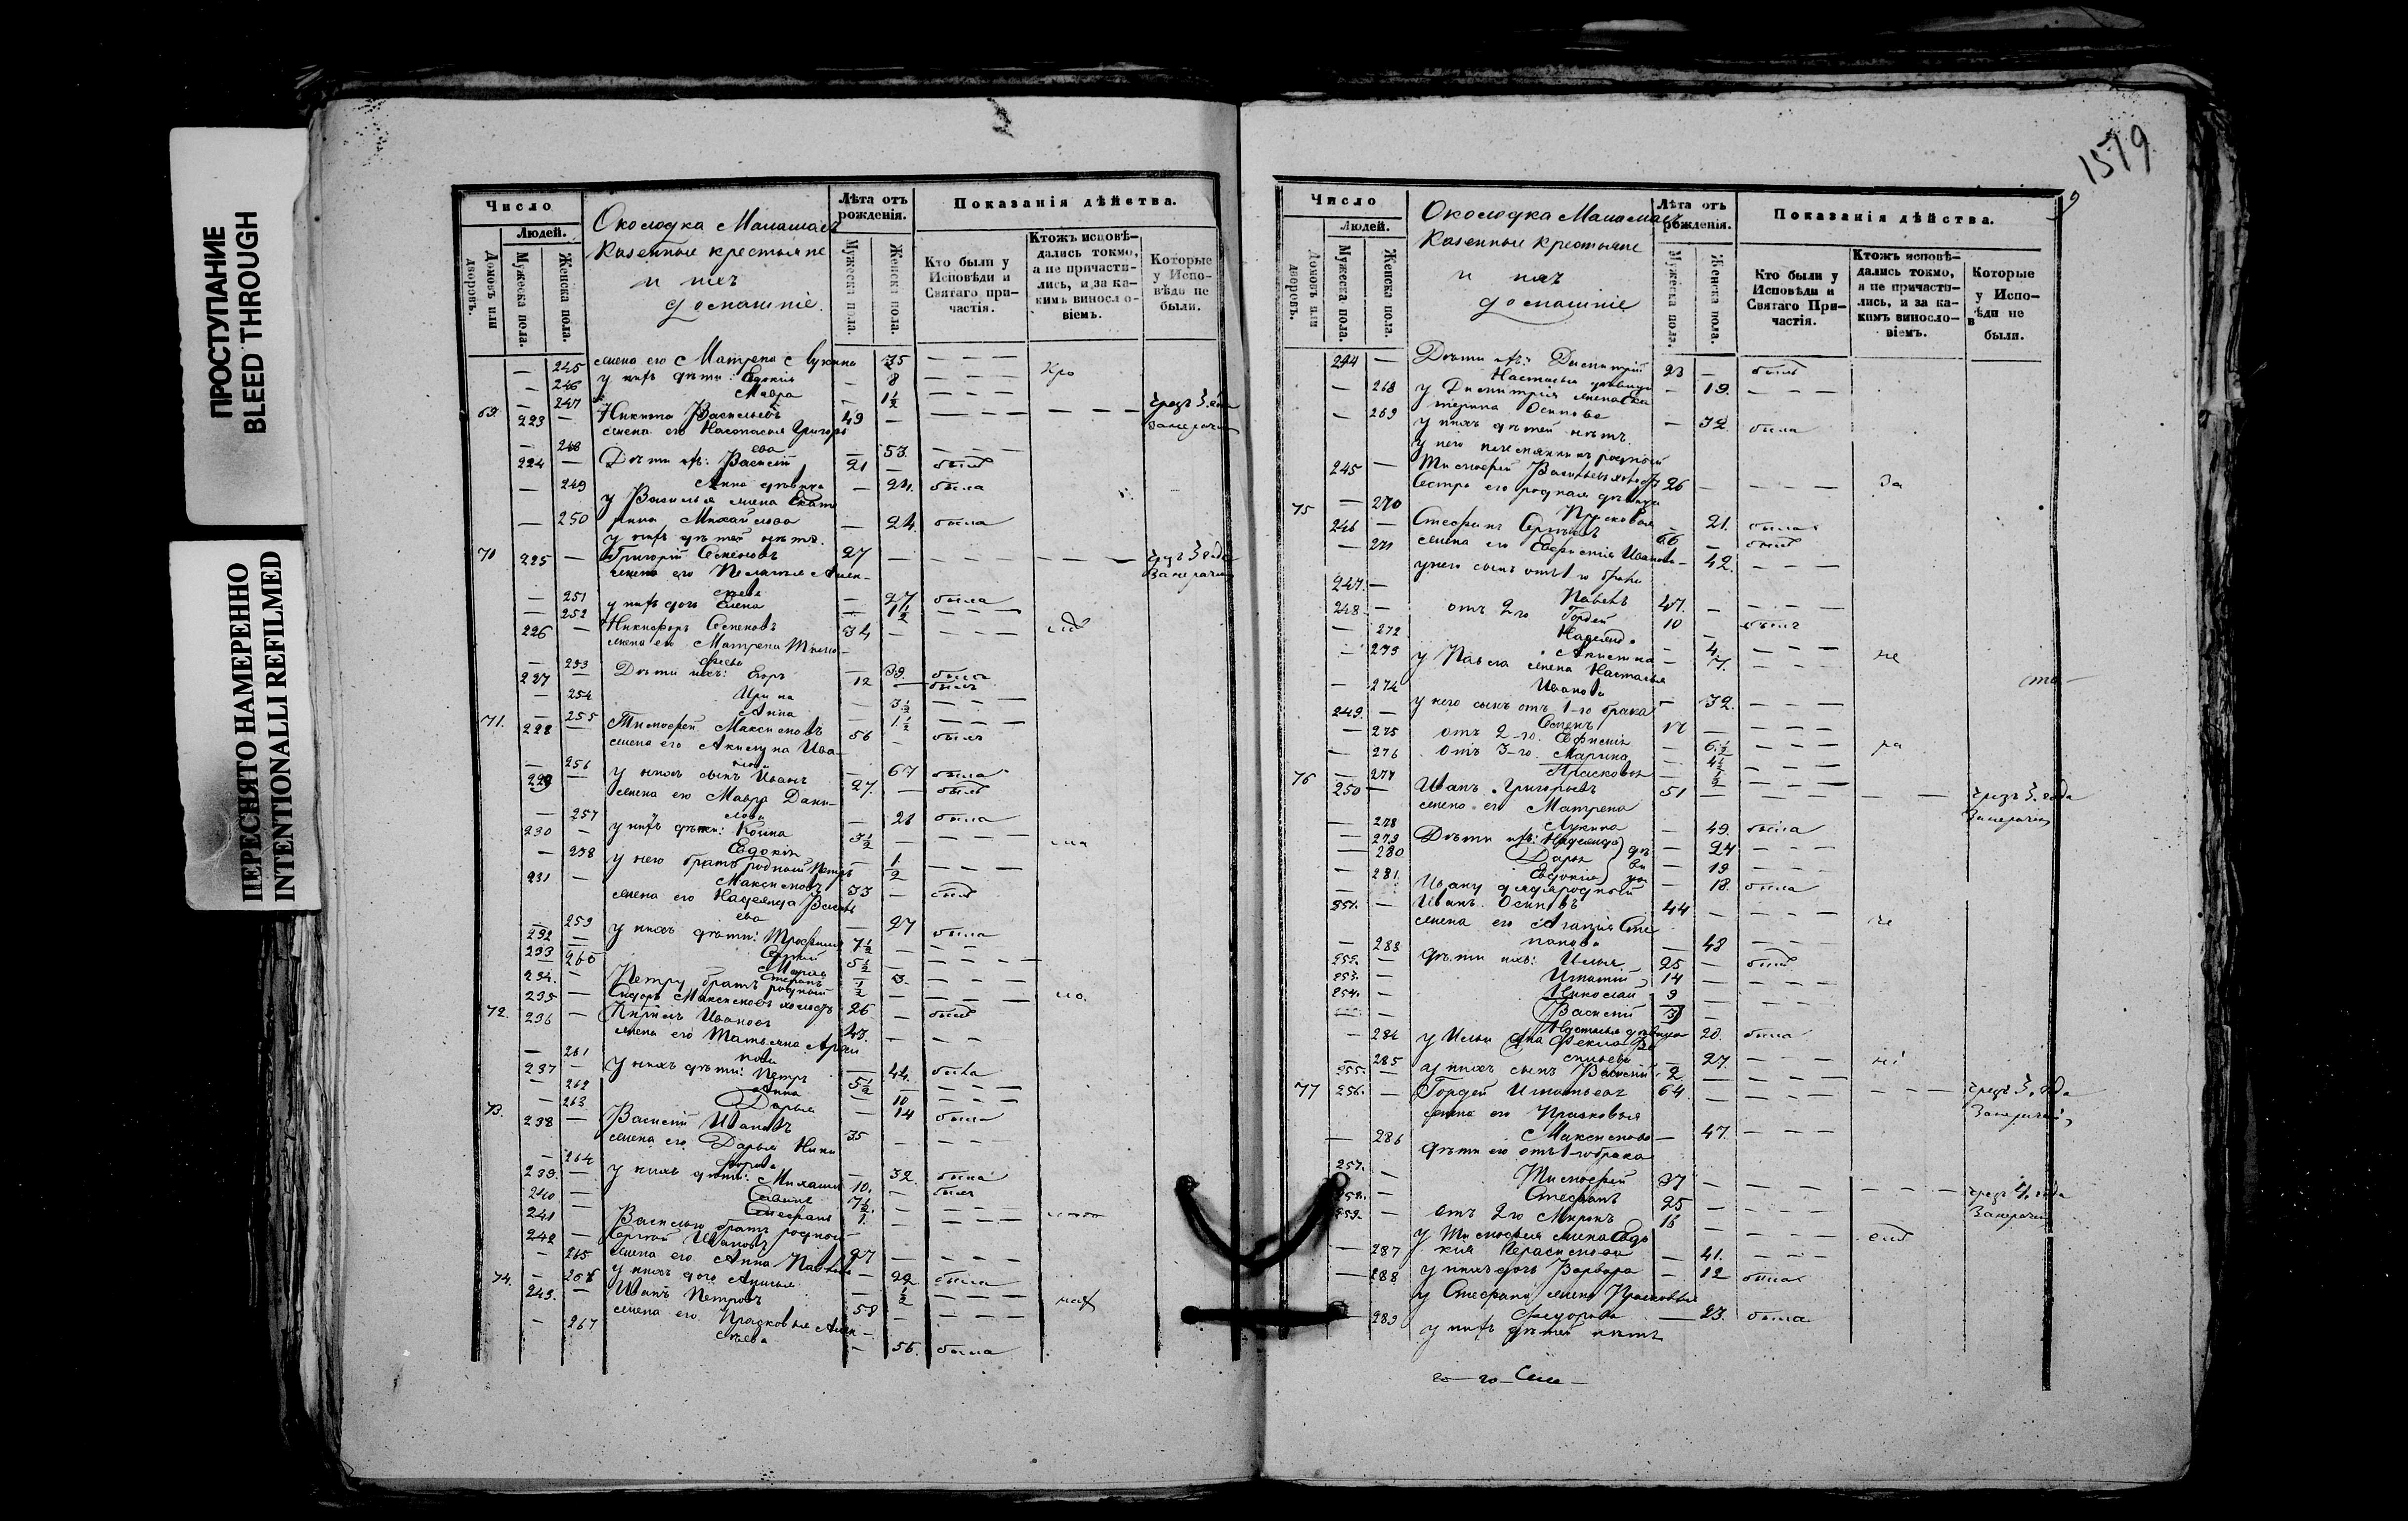 ПРОСТУПАНИЕ
BLEED THROUGH
ПЕРЕСНЯТО НАМЕРЕННО
INTENTIONALLI REFILMED
Число
Людей.
Домовъ или дворовъ.
Мужеска пола.
Женска пола.
Околодка
Казенные крестьяне
и ихъ
домашніе.
Лѣта отъ рожденія.
Мужеска пола.
Женска пола.
Показанія дѣйства.
Кто были у Исповѣди и Святаго причастія.
Ктожъ исповѣдались токмо, а не причастились, и за какимъ винословіемъ.
Которые у Исповѣди не были.
245 жена его Матрена Лукина 35
246 у нихъ дѣти: Евдокія 8
247 Мавра 1½
69 223 Никита Васильевъ 49
жена его Настасья Григорь
248 ева 53
224 Дѣти ихъ: Василій 21 былъ
249 Анна дѣвица 24 была
у Василья жена Екате
250 рина Михайлова 24 была
у нихъ дѣтей нѣтъ.
70 225 Григорій Семеновъ 27
жена его Пелагея Алек-
251 сѣева 27 была
252 у нихъ дочь Елена 1½
226 Никифоръ Семеновъ 34
жена его Матрена Тимо-
253 феева 39 была
227 Дѣти ихъ: Егоръ 12 былъ
254 Ирина 3½
255 Анна 1½
71. 228 Тимофей Максимовъ 56 былъ
жена его Акилина Ива-
256 нова 67 была
229 у нихъ сынъ Иванъ 27. былъ
жена его Мавра Дани-
257 лова 26 была
230 у нихъ дѣти: Козма 3½
258 Евдокія 1
у него братъ родной Петръ
231 Максимовъ 33 былъ
жена его Надежда Василь
259 ева 27 была
232 у нихъ дѣти: Трофимъ 7½
233 Сергѣй 5½
260 Марѳа 3
234. Степанъ ½
Петру братъ родный
235 Сидоръ Максимовъ холостъ 26 былъ
72. 236 Кирилъ Ивановъ 43.
жена его Татьяна
261 44. была
237 у нихъ дѣти: Петръ 5½
262 Анна 10
263 Дарья 14 была
73. 238 Василій Ивановъ 35
жена его Дарья Ники
264 форова 32. была
239. у нихъ дѣти: Михаилъ 10. былъ
240 7½.
241 Стефанъ 1.
Василью братъ родной
242 Сергѣй Ивановъ 27
265 жена его Анна Павлова 22 была
266 у нихъ дочь Анисья ½
74. 243. Иванъ Петровъ 58
жена его Прасковья Алек-
267 сѣева 56. была
1579
Число
Людей.
Домовъ или дворовъ.
Мужеска пола.
Женска пола.
Околодка
Казенные крестьяне
и ихъ
домашніе
Лѣта отъ рожденія.
Мужеска пола.
Женска пола.
Показанія дѣйства.
Кто были у Исповѣди и Святаго Причастія.
Ктожъ исповѣдались токмо, а не причастились, и за какимъ винословіемъ.
Которые у Исповѣди не были.
244 Дѣти ихъ: Димитрій 23 былъ
268 Настасья дѣвица 19.
у Димитрія жена Ека
269 терина Осипова 32 была
у нихъ дѣтей нѣтъ.
у него племянникъ родный
245 Тимофей Васильевъ холостъ 26
Сестра его родная дѣвица
270 Прасковья 21. была
75 246 Стефанъ Сергѣевъ 66 былъ
271 жена его Евфимія Иванова 42.
у него сынъ отъ 1-го брака
247. Павелъ 47.
248. отъ 2-го Гордей 10 былъ
272 Надежда 4
273 7.
у Павла жена Настасья
274 Иванова 32.
у него сынъ отъ 1-го брака
249. Семенъ 12
275 отъ 2-го Евфимія 6½
276 отъ 3-го Марина 4½
277 Прасковья ½
76 250 Иванъ Григорьевъ 51
жена его Матрена
278 Лукина 49. была
279 Дѣти ихъ: Надежда 24
280 Дарья 19
281. Евдокія 18. была
Ивану дядя родный
251. Иванъ Осиповъ 44
жена его Агафія Сте
283 панова 48
252. дѣти ихъ: Илья 25 былъ
253. Игнатій 14
254. Николай 9
Василій 3
284 Настасья дѣвица 20. была
у Ильи жена Фекла Ва
285 сильева 27.
255. у нихъ сынъ Василій 2
77 256. Гордей Игнатьевъ 64
жена его Прасковья
286 Максимова 47.
дѣти его отъ 1-го брака
257. Тимофей 37
258. Стефанъ 25
259. отъ 2-го Миронъ 16
у Тимофея жена Евдо
287 кія Герасимова 41.
288 у нихъ дочь Варвара 12 была
у Стефана жена Прасковья
289 Федорова 23. была
у нихъ дѣтей нѣтъ